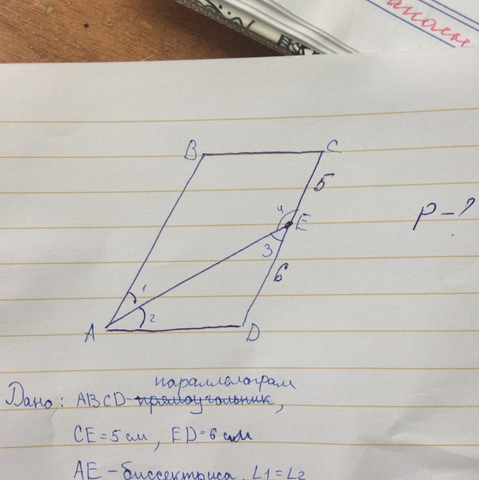 анаси
B
C
5
4
E
P-?
3
6
1
2
A
D
параллелограм
Дано: ABCD прямоугольник,
CE=5см, ED=6см
AE-биссектриса, L1=L2